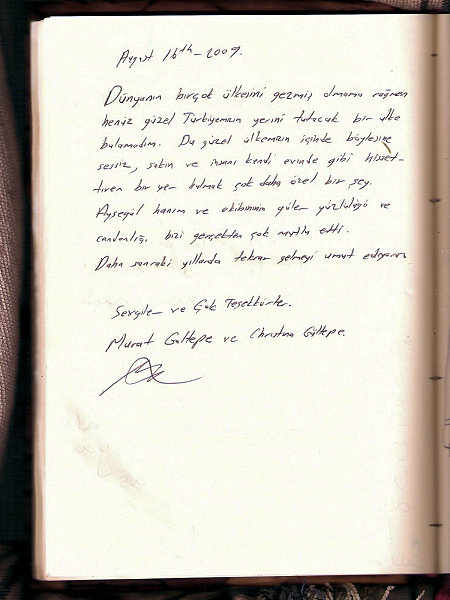 August 16th - 2009.
Dünyanın birçok ülkesini gezmiş olmama rağmen
henüz güzel Türkiyemizin yerini tutacak bir ülke
bulamadım. Bu güzel ülkemizin içinde böylesine
sessiz, sakin ve insanı kendi evinde gibi hisset-
tiren bir yer bulmak çok daha özel bir şey.
Ayşegül hanım ve ekibinin güler yüzlülüğü ve
candanlığı bizi gerçekten çok mutlu etti.
Daha sonraki yıllarda tekrar gelmeyi umut ediyoruz
Sevgiler ve Çok Teşekkürler.
Murat Göltepe ve Christina Göltepe.